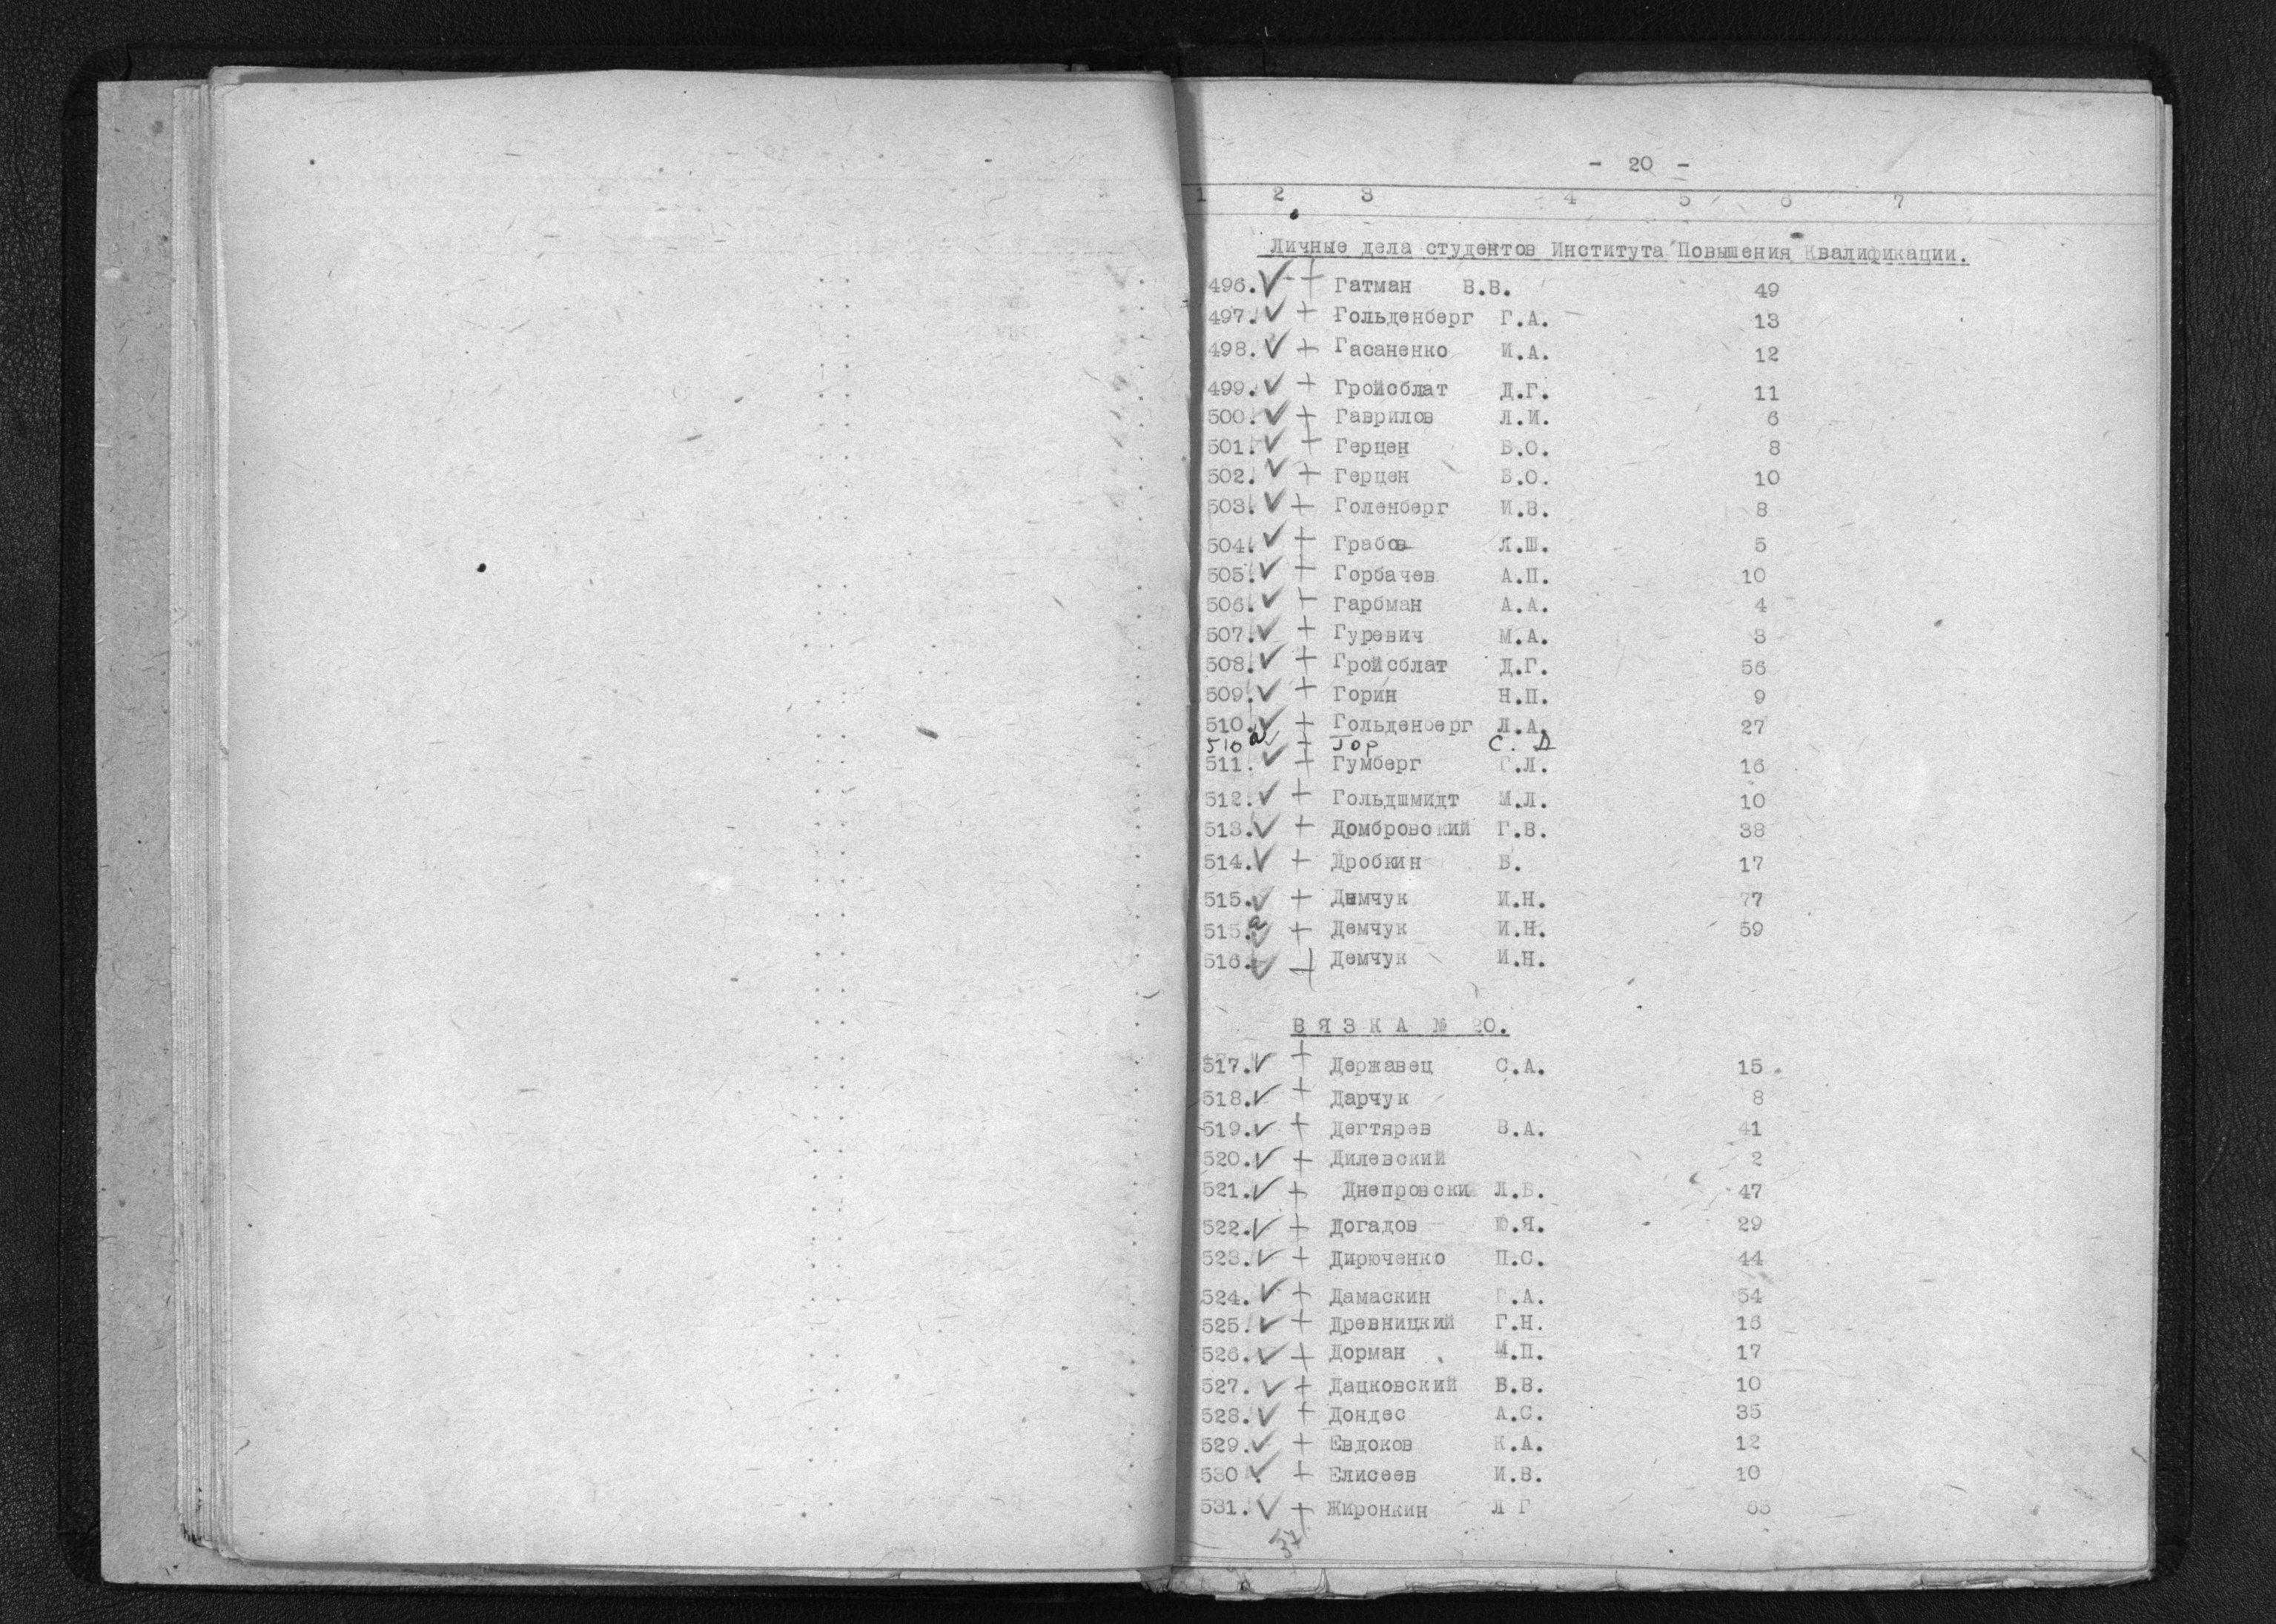 - 20 -
1 2 3 4 5 6 7
Личные дела студентов Института Повышения Квалификации.
496. ✓ + Гатман В.В. 49
497. ✓ + Гольденберг Г.А. 13
498. ✓ + Гасаненко И.А. 12
499. ✓ + Гройсблат Д.Г. 11
500. ✓ + Гаврилов Л.И. 6
501. ✓ + Герцен Б.О. 8
502. ✓ + Герцен Б.О. 10
503. ✓ + Голенберг И.В. 8
504. ✓ + Грабов Л.Ш. 5
505. ✓ + Горбачев А.П. 10
506. ✓ + Гарбман А.А. 4
507. ✓ + Гуревич М.А. 3
508. ✓ + Гройсблат Д.Г. 56
509. ✓ + Горин Н.П. 9
510. ✓ + Гольденберг Л.А. 27
510 а ✓ + Гор С. Д
511. ✓ + Гумберг Г.Л. 16
512. ✓ + Гольдшмидт М.Л. 10
513. ✓ + Домбровский Г.В. 38
514. ✓ + Дробкин Б. 17
515. ✓ + Демчук И.Н. 77
515.а ✓ + Демчук И.Н. 59
516. ✓ + Демчук И.Н.
ВЯЗКА № 20.
517. ✓ + Державец С.А. 15
518. ✓ + Дарчук 8
519. ✓ + Дегтярев В.А. 41
520. ✓ + Дилевский 2
521. ✓ + Днепровский Л.Б. 47
522. ✓ + Догадов Ю.Я. 29
523. ✓ + Дирюченко П.С. 44
524. ✓ + Дамаскин Г.А. 54
525. ✓ + Древницкий Г.Н. 16
526. ✓ + Дорман М.П. 17
527. ✓ + Дацковский В.В. 10
528. ✓ + Дондес А.С. 35
529. ✓ + Евдоков К.А. 12
530 ✓. + Елисеев И.В. 10
531. ✓ + Жиронкин Л Г
37